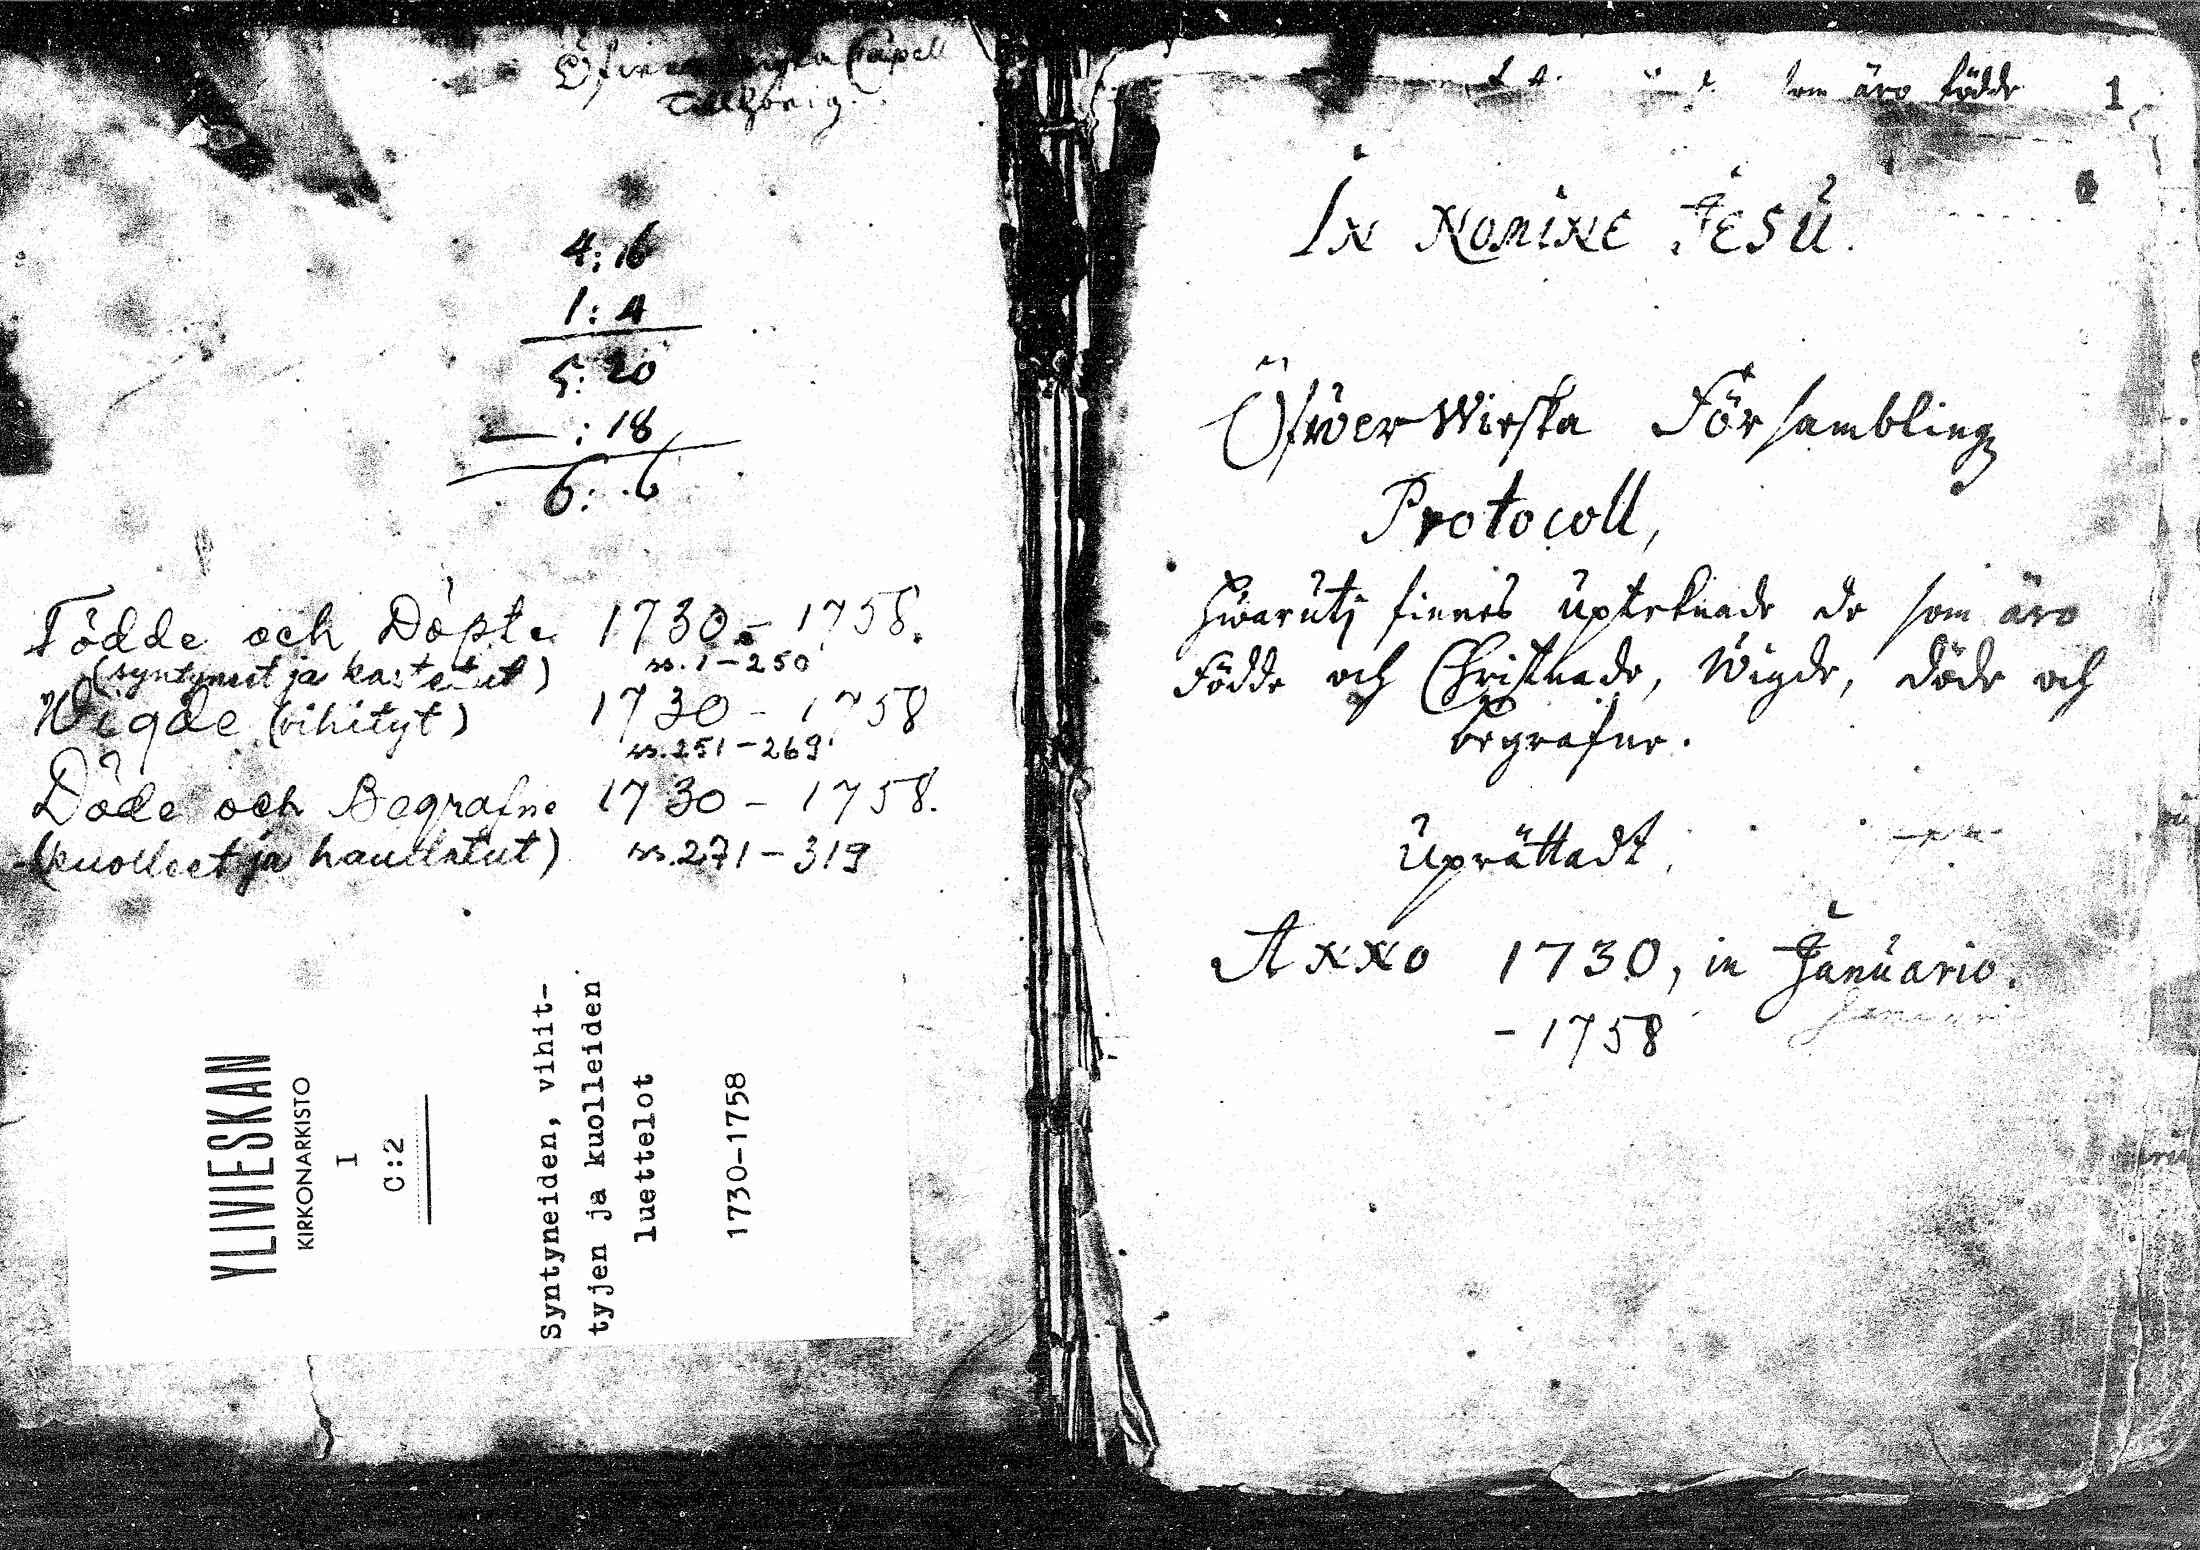 Capell
Tillhörig.
4: 16
1: 4
5: 20
— : 18
6: . 6
Födde och Döpte 1730 - 1758.
(syntyneet ja kastetut) ss. 1-250
Wigde (vihityt) 1730 - 1758
ss. 251-269
Döde och Begrafne 1730 - 1758.
(kuolleet ja haudatut) ss. 271-319
YLIVIESKAN
KIRKONARKISTO
I
C:2
Syntyneiden, vihit-
tyjen ja kuolleiden
luettelot
1730-1758
som äro födde 1
In Nomine Jesu.
Öfwer Wieska Försambling
Protocoll,
Hwaruti finnes upteknade de som äro
Födde och Christnade, Wigde, döde och
begrafne.
Uprättadt
Anno 1730, in Januario.
- 1758